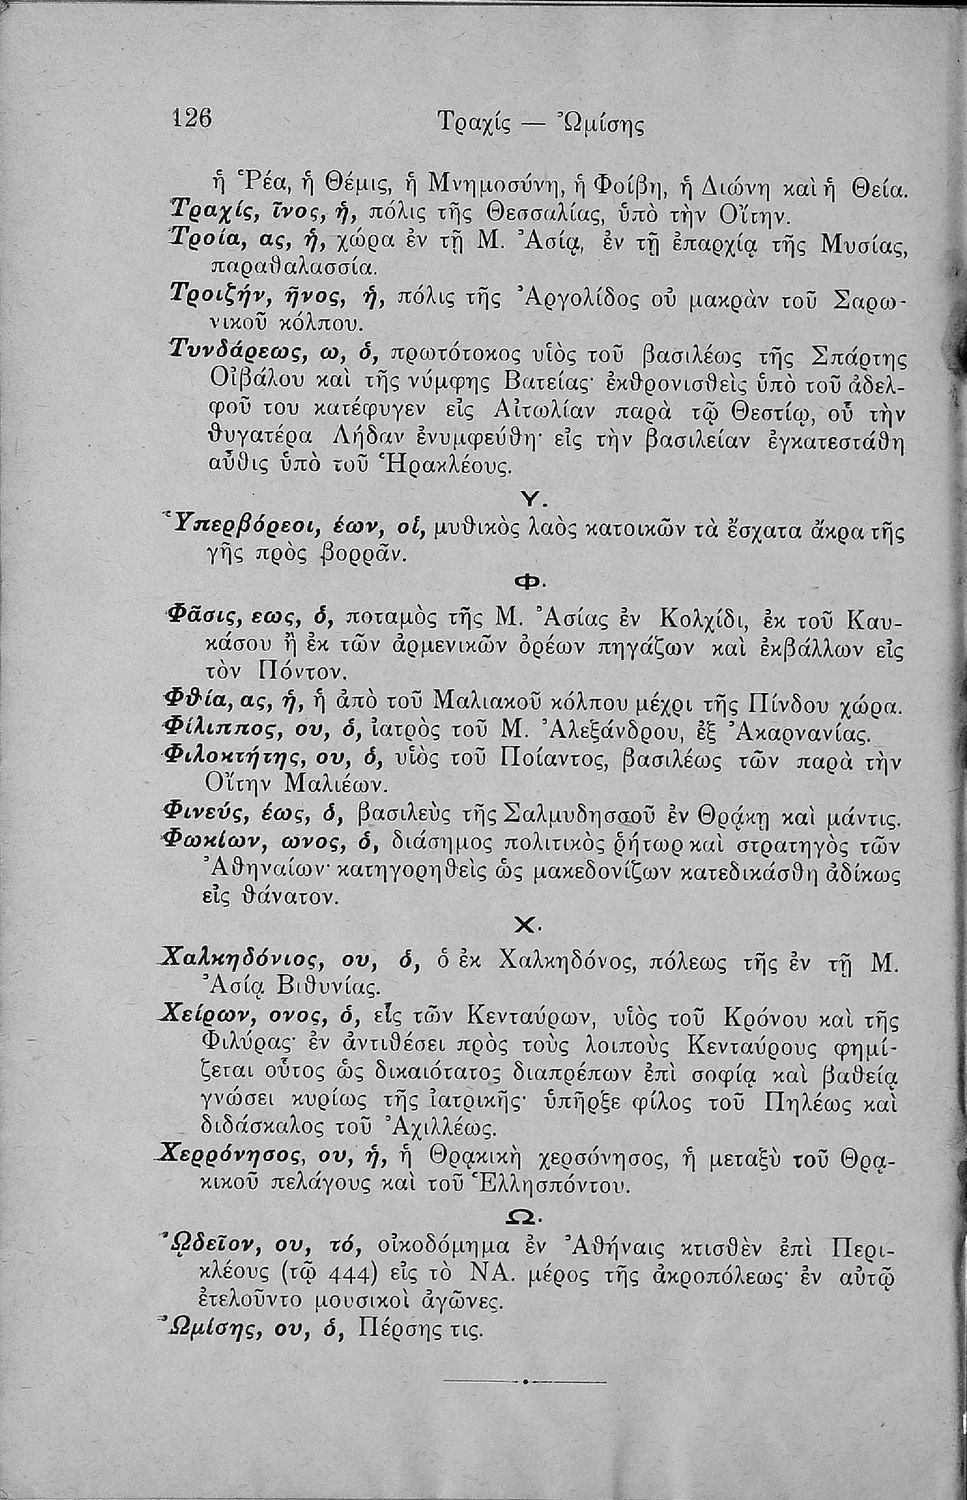 126 Τραχίς — Ὠμίσης
ἡ Ῥέα, ἡ Θέμις, ἡ Μνημοσύνη, ἡ Φοίβη, ἡ Διώνη καὶ ἡ Θεία.
Τραχίς, ῖνος, ἡ, πόλις τῆς Θεσσαλίας, ὑπὸ τὴν Οἴτην.
Τροία, ας, ἡ, χώρα ἐν τῇ Μ. Ἀσίᾳ, ἐν τῇ ἐπαρχίᾳ τῆς Μυσίας,
παραθαλασσία.
Τροιζήν, ῆνος, ἡ, πόλις τῆς Ἀργολίδος οὐ μακρὰν τοῦ Σαρω-
νικοῦ κόλπου.
Τυνδάρεως, ω, ὁ, πρωτότοκος υἱὸς τοῦ βασιλέως τῆς Σπάρτης
Οἰβάλου καὶ τῆς νύμφης Βατείας· ἐκθρονισθεὶς ὑπὸ τοῦ ἀδελ-
φοῦ του κατέφυγεν εἰς Αἰτωλίαν παρὰ τῷ Θεστίῳ, οὗ τὴν
θυγατέρα Λήδαν ἐνυμφεύθη· εἰς τὴν βασιλείαν ἐγκατεστάθη
αὖθις ὑπὸ τοῦ Ἡρακλέους.
Υ.
Ὑπερβόρεοι, έων, οἱ, μυθικὸς λαὸς κατοικῶν τὰ ἔσχατα ἄκρα τῆς
γῆς πρὸς βορρᾶν.
Φ.
Φᾶσις, εως, ὁ, ποταμὸς τῆς Μ. Ἀσίας ἐν Κολχίδι, ἐκ τοῦ Καυ-
κάσου ἢ ἐκ τῶν ἀρμενικῶν ὀρέων πηγάζων καὶ ἐκβάλλων εἰς
τὸν Πόντον.
Φθία, ας, ἡ, ἡ ἀπὸ τοῦ Μαλιακοῦ κόλπου μέχρι τῆς Πίνδου χώρα.
Φίλιππος, ου, ὁ, ἰατρὸς τοῦ Μ. Ἀλεξάνδρου, ἐξ Ἀκαρνανίας.
Φιλοκτήτης, ου, ὁ, υἱὸς τοῦ Ποίαντος, βασιλέως τῶν παρὰ τὴν
Οἴτην Μαλιέων.
Φινεύς, έως, ὁ, βασιλεὺς τῆς Σαλμυδησσοῦ ἐν Θρᾴκῃ καὶ μάντις.
Φωκίων, ωνος, ὁ, διάσημος πολιτικὸς ῥήτωρ καὶ στρατηγὸς τῶν
Ἀθηναίων· κατηγορηθεὶς ὡς μακεδονίζων κατεδικάσθη ἀδίκως
εἰς θάνατον.
Χ.
Χαλκηδόνιος, ου, ὁ, ὁ ἐκ Χαλκηδόνος, πόλεως τῆς ἐν τῇ Μ.
Ἀσίᾳ Βιθυνίας.
Χείρων, ονος, ὁ, εἷς τῶν Κενταύρων, υἱὸς τοῦ Κρόνου καὶ τῆς
Φιλύρας· ἐν ἀντιθέσει πρὸς τοὺς λοιποὺς Κενταύρους φημί-
ζεται οὗτος ὡς δικαιότατος διαπρέπων ἐπὶ σοφίᾳ καὶ βαθείᾳ
γνώσει κυρίως τῆς ἰατρικῆς· ὑπῆρξε φίλος τοῦ Πηλέως καὶ
διδάσκαλος τοῦ Ἀχιλλέως.
Χερρόνησος, ου, ἡ, ἡ Θρᾳκικὴ χερσόνησος, ἡ μεταξὺ τοῦ Θρᾳ-
κικοῦ πελάγους καὶ τοῦ Ἑλλησπόντου.
Ω.
ᾨδεῖον, ου, τό, οἰκοδόμημα ἐν Ἀθήναις κτισθὲν ἐπὶ Περι-
κλέους (τῷ 444) εἰς τὸ ΝΑ. μέρος τῆς ἀκροπόλεως· ἐν αὐτῷ
ἐτελοῦντο μουσικοὶ ἀγῶνες.
Ὠμίσης, ου, ὁ, Πέρσης τις.